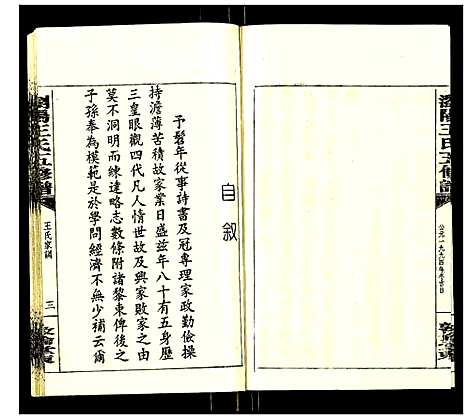 瀏陽王氏五修譜
自叙
予髫年從事詩書及冠專理家政勤儉操
持澹薄苦積故家業日盛茲年八十有五身歷
三皇眼觀四代凡人情世故及興家敗家之由
莫不洞明而練達略志數條附諸黎東俾後之
子孫奉為模範是於學問經濟不無少補云爾
瀏陽王氏五修譜
王氏家訓
三